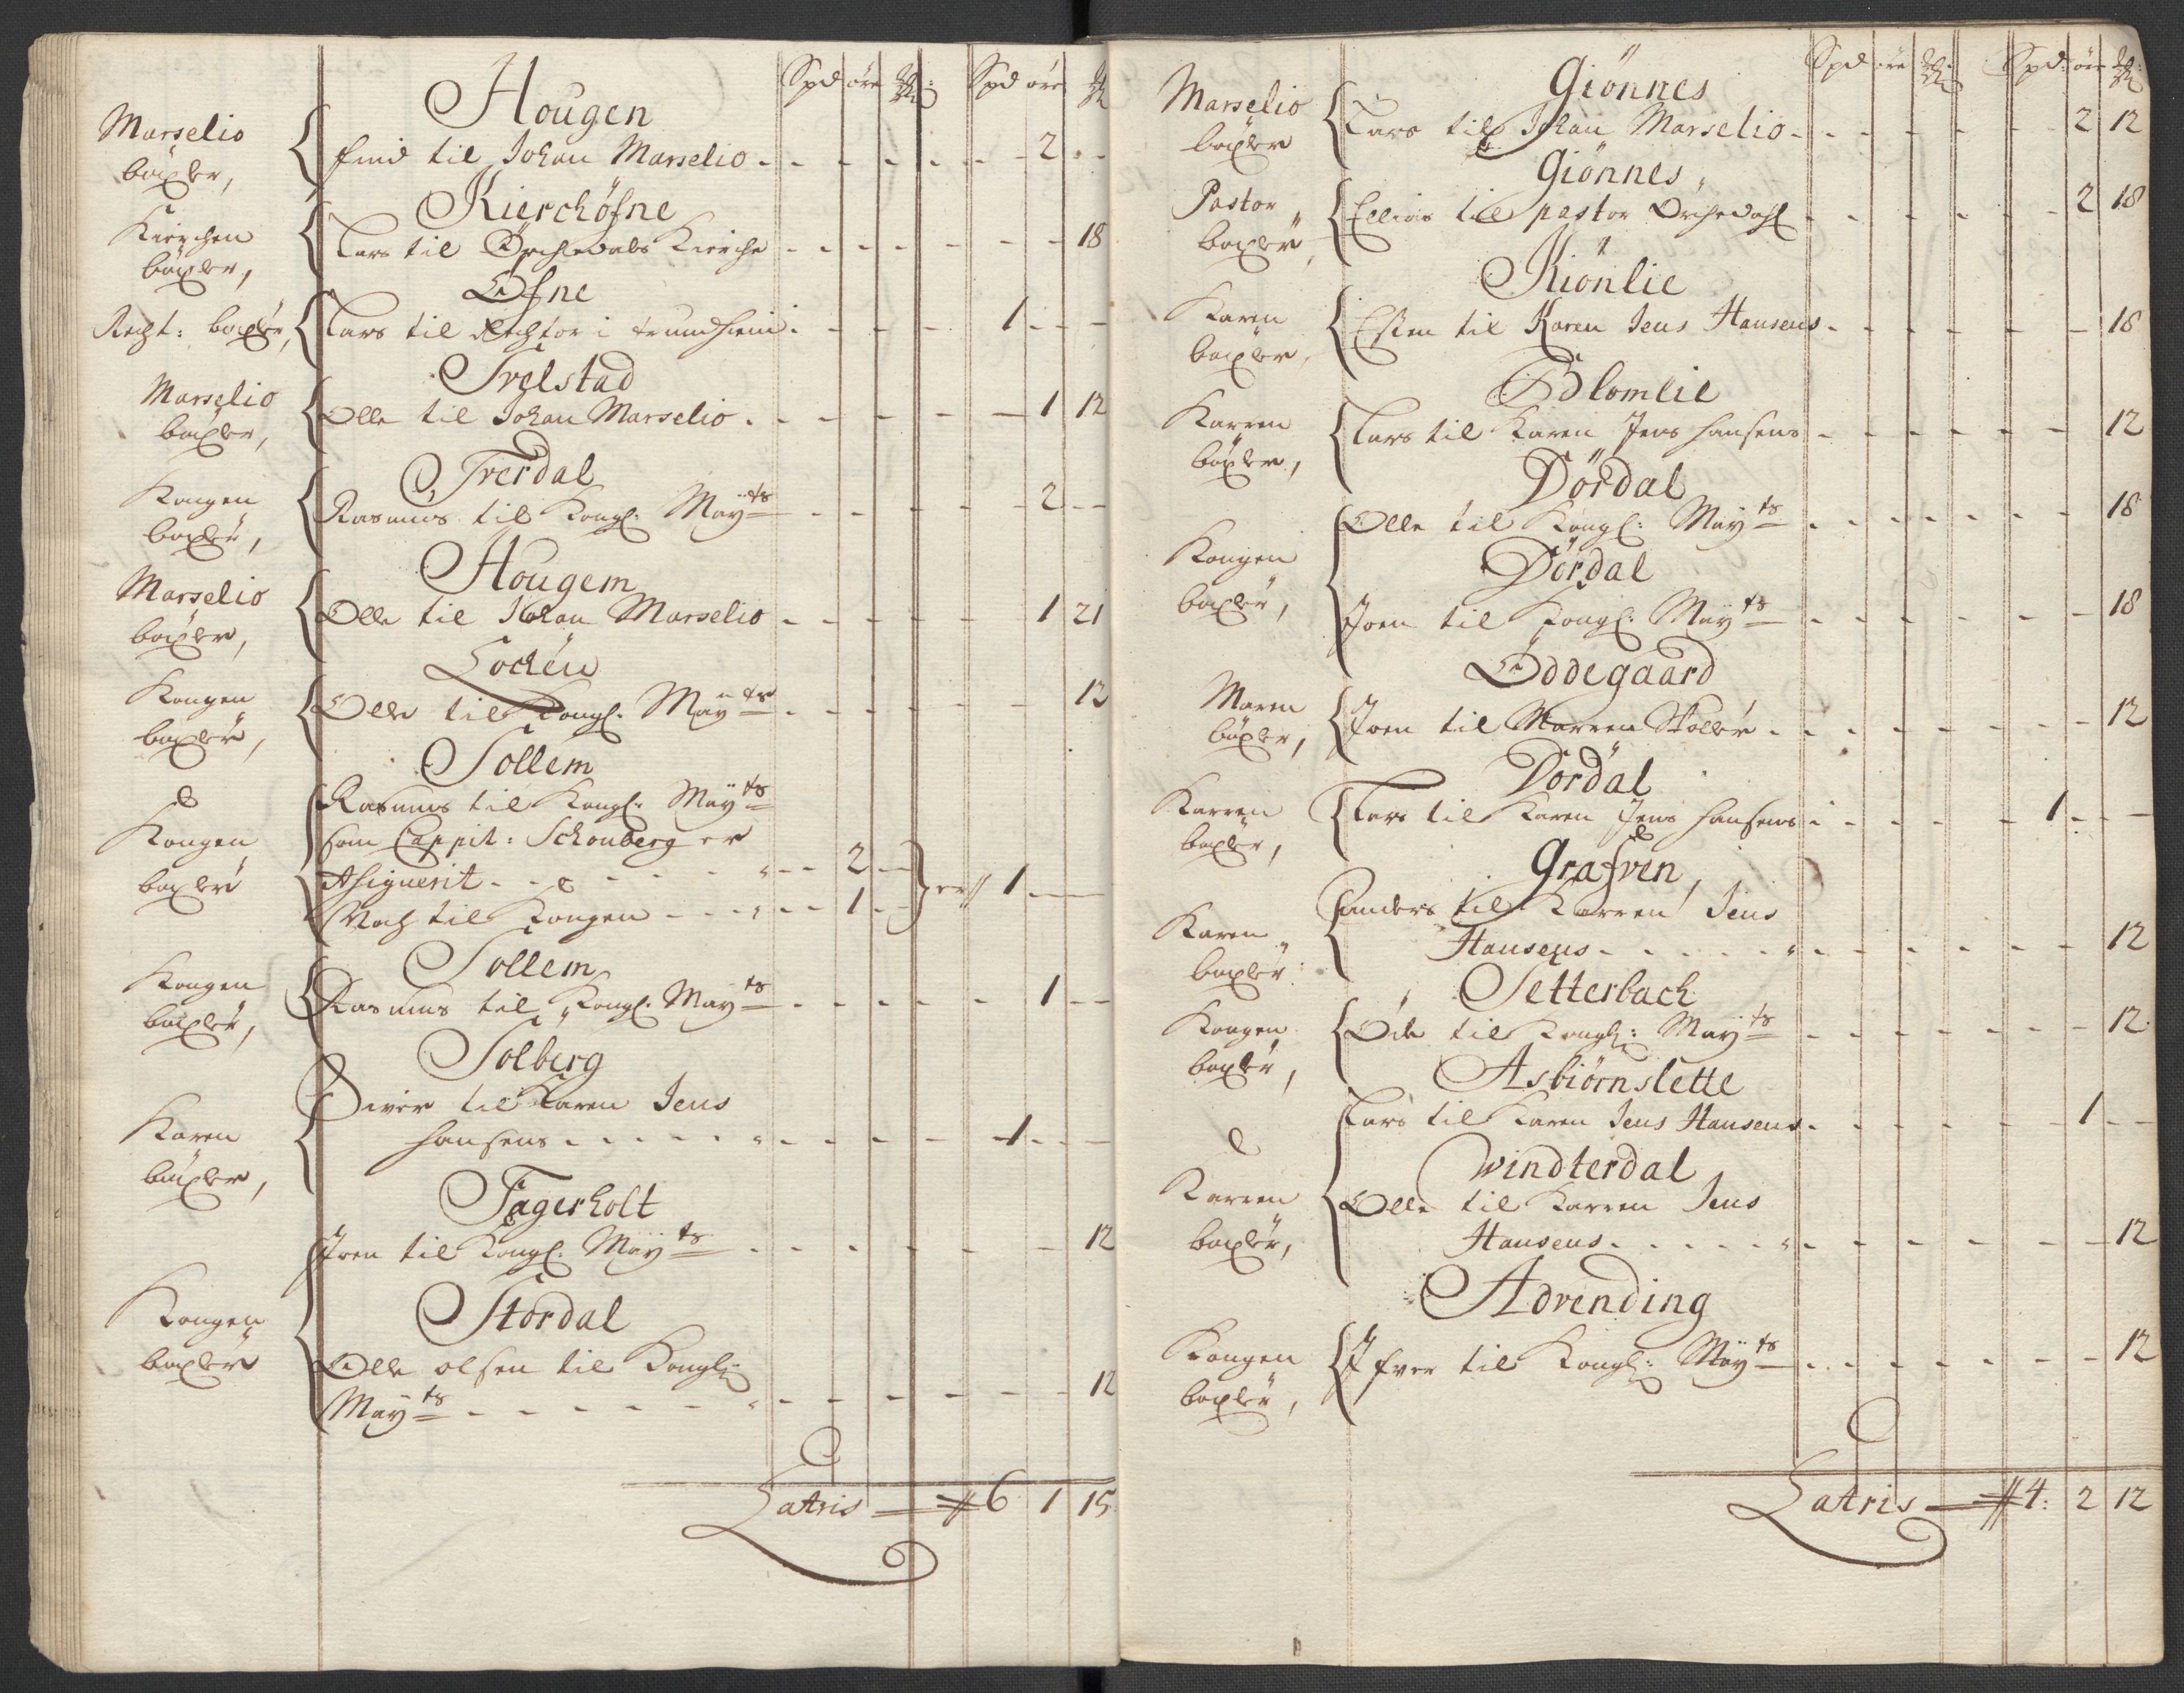 Spd öre Spd öre
Hougen
Marselio
böxler,
find til Johan Marselio - 2 - -
Kierchöfne
Kirchen
böxler,
Lars til Örchedals Kirche - 18
Öfne
Recht: boxler,
Lars til Rechtor i trundhiem - 1 - -
Trelstad
Marselio
boxler,
Olle til Johan Marselio - 1 12
Trerdal
Kongen
boxler,
Rasmus til Kongl: Mayts - 2 - -
Hougem
Marselio
boxler,
Olle til Johan Marselio - 1 21
Lochen
Kongen
boxler,
Olle til Kongl: Mayts - 12
Sollem
Kongen
boxler
Rasmus til Kongl: Mayts
som Cappit: Schouberg er
Assignerit - 2 -
Noch til Kongen - 1 - er 1 - -
Sollem
Kongen
boxler,
Rasmus til Kongl: Mayts - 1 - -
Solberg
Karen
boxler,
Siver til Karen Jens
hansens - 1 - -
Fagerholt
Joen til Kongl: Mayts - 12
Stordal
Kongen
boxler
Olle olsen til Kongl:
Mayts - 12
Latris 6 1 15
Spd öre Spd: öre
Giönnes
Marselio
boxler
Lars til Johan Marselio - 2 12
Giönnes
Pastor
boxler,
Ellias til pastor Orchedahl - 2 18
Kiönlie
Karen
boxler,
Esten til Karen Jens Hansens - 18
Blomlie
Karren
böxler,
Lars til Karen Jens hansens - 12
Dördal
Olle til Kongl: Mayts - 18
Dördal
Kongen
boxler,
Joen til Kongl: Mayts - 18
Öddegaard
Maren
böxler,
Joen til Marren Stoller - 12
Dördal
Karren
boxler,
Lars til Karen Jens hansens - 1 - -
Grafven,
Karen
boxler:
anders til Karren Jens
Hansens - 12
Setterbach
Kongen
boxler,
Öde til Kongl: Mayts - 12
Asbiörnslette
Lars til Karen Jens Hansens - 1 - -
Windterdal
Karren
boxler,
Olle til Karren Jens
Hansens - 12
Advending
Kongen
boxler,
Ifver til Kongl: Mayts - 12
Latris 4: 2 12